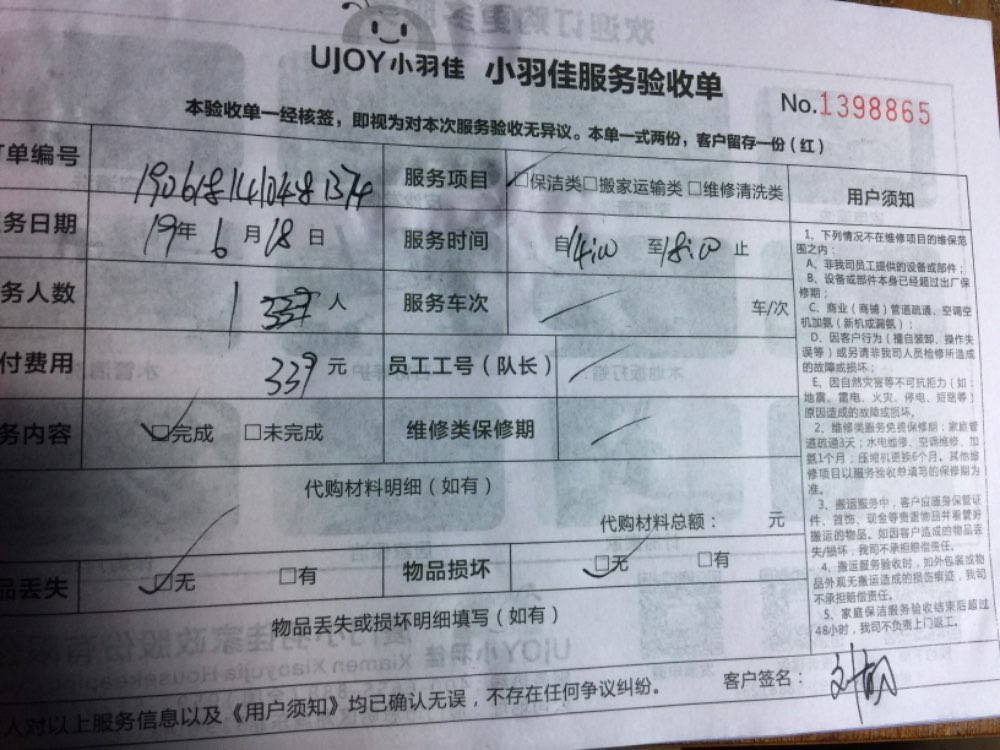 UJOY小羽佳 小羽佳服务验收单
No.1398865
本验收单一经核签，即视为对本次服务验收无异议。本单一式两份，客户留存一份（红）
单编号 1906181410481374 服务项目 □保洁类□搬家运输类□维修清洗类 用户须知
务日期 19年6月18日 服务时间 自14:00 至18:00 止
务人数 1 人 服务车次 车/次
付费用 339 元 员工工号（队长）
务内容 □完成 □未完成 维修类保修期
代购材料明细（如有）
代购材料总额： 元
品丢失 □无 □有 物品损坏 □无 □有
物品丢失或损坏明细填写（如有）
人对以上服务信息以及《用户须知》均已确认无误，不存在任何争议纠纷。
客户签名：
1、下列情况不在维修项目的维保范
围之内：
A、非我司员工提供的设备或部件；
B、设备或部件本身已经超过出厂保
修期；
C、商业（商铺）管道疏通、空调空
机加氨（新机或漏氨）；
D、因客户行为（擅自装卸、操作失
误等）或另请非我司人员检修所造成
的故障或损坏；
E、因自然灾害等不可抗拒力（如：
地震、雷电、火灾、停电、短路等）
原因造成的故障或损坏。
2、维修类服务免费保修期：家庭管
道疏通3天；水电维修、空调维修、加
氨1个月；压缩机更换6个月。其他维
修项目以服务验收单填写的保修期为
准。
3、搬运服务中，客户应随身保管证
件、首饰、现金等贵重物品并看管好
搬运的物品。如因客户造成的物品丢
失/损坏，我司不承担赔偿责任。
4、搬运服务验收时，如外包装或物
品外观无搬运造成的损伤痕迹，我司
不承担赔偿责任。
5、家庭保洁服务验收结束后超过
48小时，我司不负责上门返工。